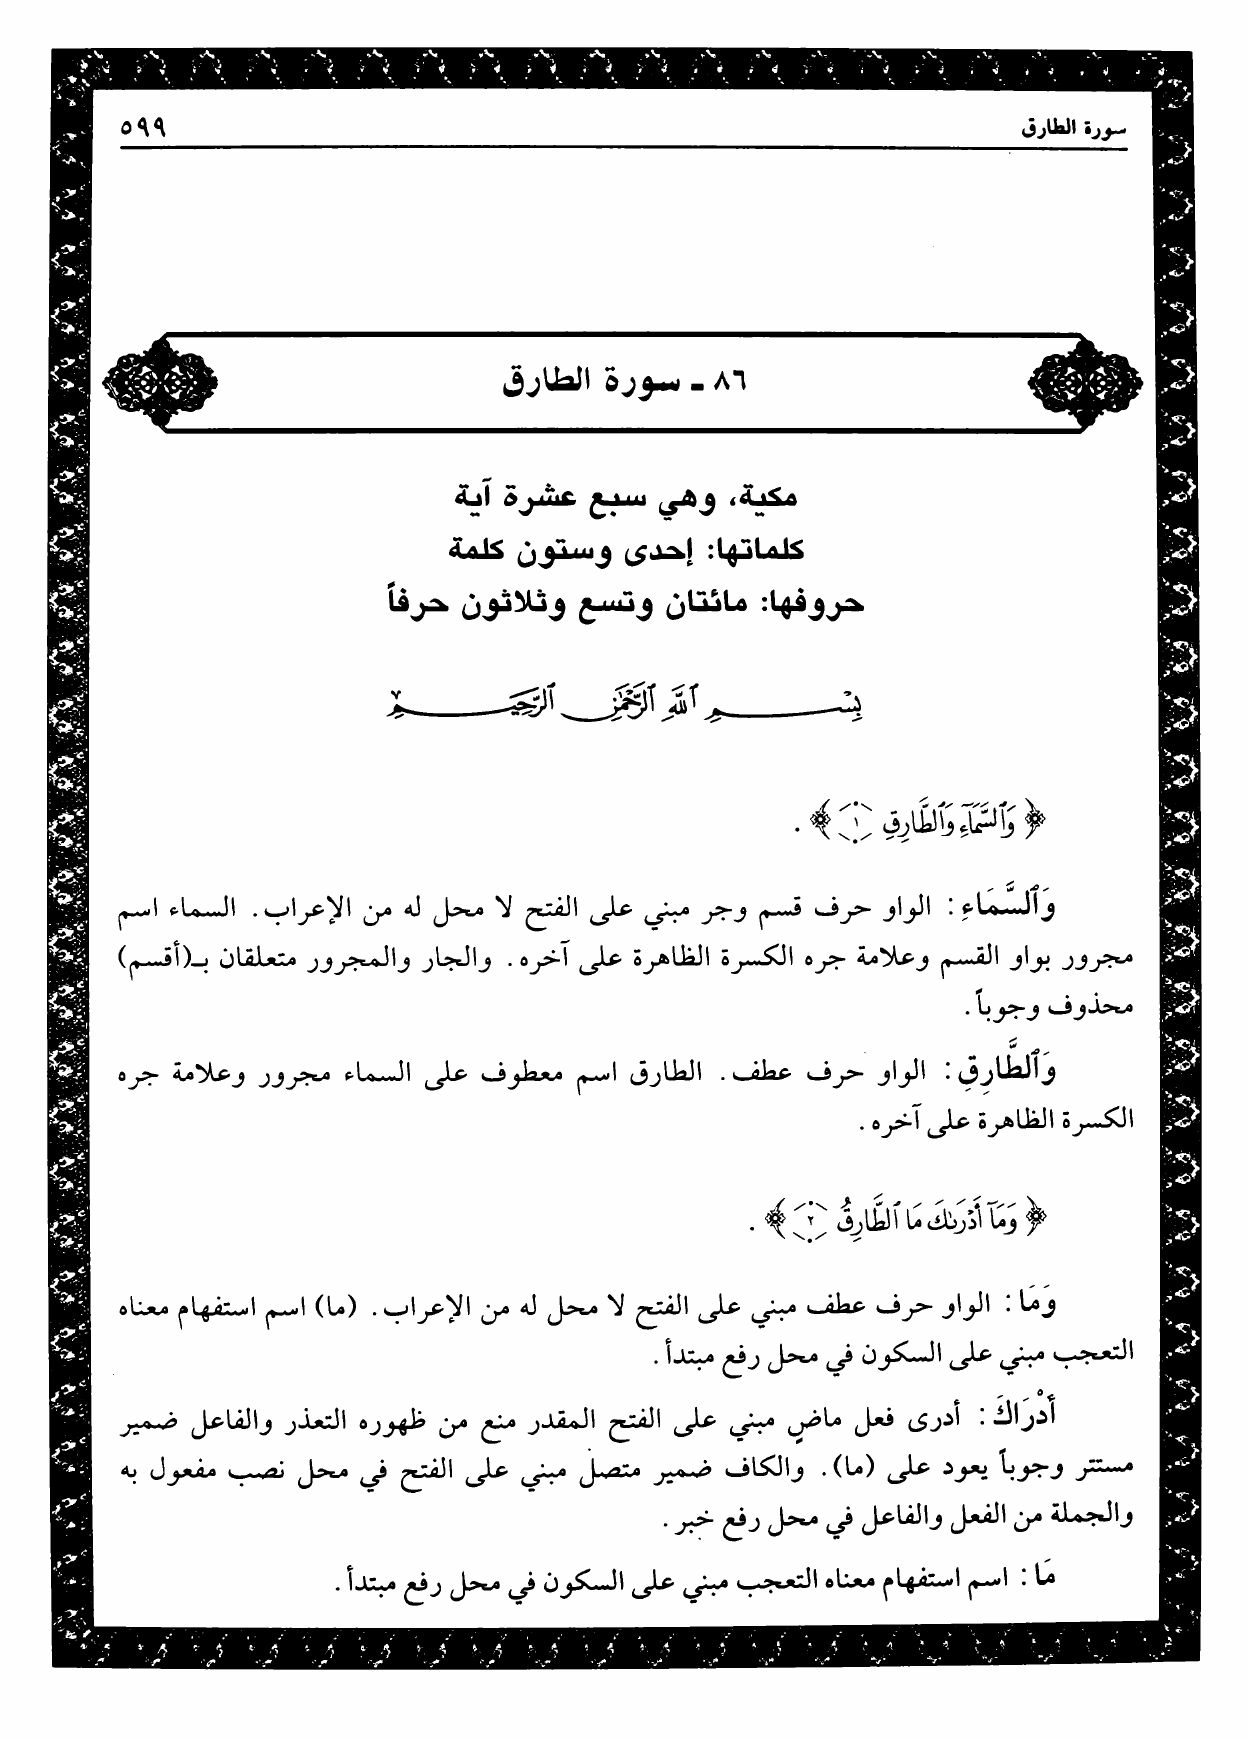 سورة الطارق ٥٩٩
٨٦ ـ سورة الطارق
مكية، وهي سبع عشرة آية
كلماتها: إحدى وستون كلمة
حروفها: مائتان وتسع وثلاثون حرفاً
بِسْمِ ٱللَّهِ ٱلرَّحْمَٰنِ ٱلرَّحِيمِ
﴿ وَٱلسَّمَآءِ وَٱلطَّارِقِ ١ ﴾ .
وَٱلسَّمَاءِ : الواو حرف قسم وجر مبني على الفتح لا محل له من الإعراب. السماء اسم
مجرور بواو القسم وعلامة جره الكسرة الظاهرة على آخره. والجار والمجرور متعلقان بـ(أقسم)
محذوف وجوباً.
وَٱلطَّارِقِ : الواو حرف عطف. الطارق اسم معطوف على السماء مجرور وعلامة جره
الكسرة الظاهرة على آخره.
﴿ وَمَآ أَدْرَىٰكَ مَا ٱلطَّارِقُ ٢ ﴾ .
وَمَا : الواو حرف عطف مبني على الفتح لا محل له من الإعراب. (ما) اسم استفهام معناه
التعجب مبني على السكون في محل رفع مبتدأ.
أَدْرَاكَ : أدرى فعل ماضٍ مبني على الفتح المقدر منع من ظهوره التعذر والفاعل ضمير
مستتر وجوباً يعود على (ما). والكاف ضمير متصل مبني على الفتح في محل نصب مفعول به
والجملة من الفعل والفاعل في محل رفع خبر.
مَا : اسم استفهام معناه التعجب مبني على السكون في محل رفع مبتدأ.